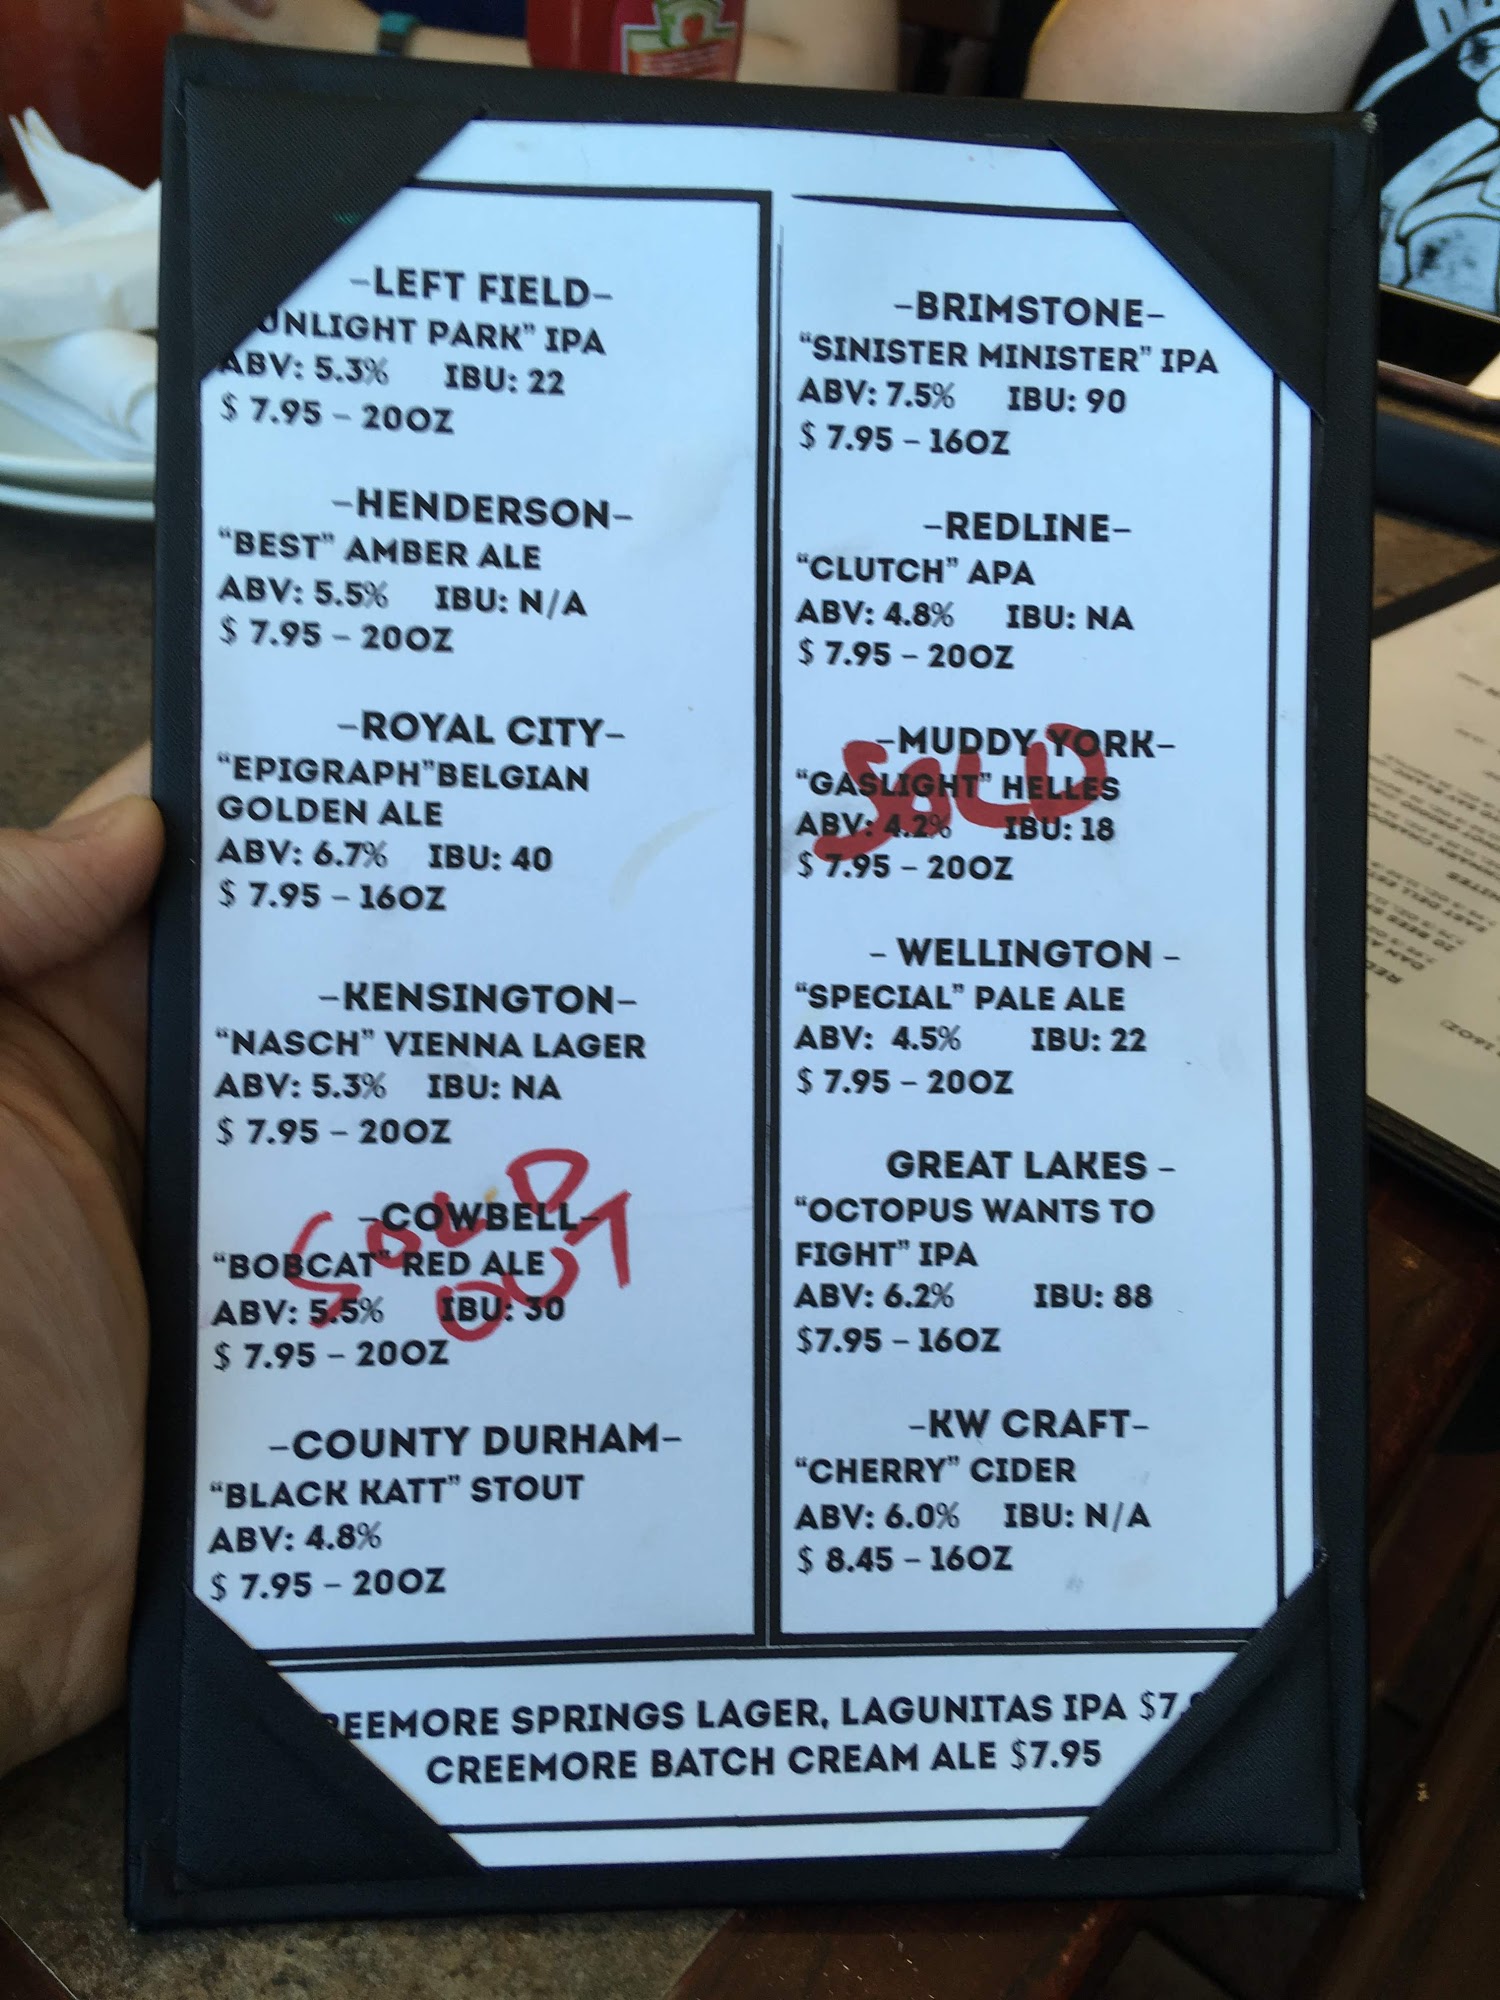 -LEFT FIELD-
PARK" IPA
ABV: 5.3% IBU: 22
$ 7.95 - 20OZ
-HENDERSON-
"BEST" AMBER ALE
ABV: 5.5% IBU: N/A
$ 7.95 - 20OZ
-ROYAL CITY-
"EPIGRAPH"BELGIAN
GOLDEN ALE
ABV: 6.7% IBU: 40
$ 7.95 - 16OZ
-KENSINGTON-
"NASCH" VIENNA LAGER
ABV: 5.3% IBU: NA
$ 7.95 - 20OZ
SOLD
OUT
-COWBELL-
"BOBCAT" RED ALE
ABV: 5.5% IBU: 30
$ 7.95 - 20OZ
-COUNTY DURHAM-
"BLACK KATT" STOUT
ABV: 4.8%
$ 7.95 - 20OZ
-BRIMSTONE-
"SINISTER MINISTER" IPA
ABV: 7.5% IBU: 90
$ 7.95 - 16OZ
-REDLINE-
"CLUTCH" APA
ABV: 4.8% IBU: NA
$ 7.95 - 20OZ
-MUDDY YORK-
SOLD
"GASLIGHT" HELLES
ABV: 4.2% IBU: 18
$ 7.95 - 20OZ
- WELLINGTON -
"SPECIAL" PALE ALE
ABV: 4.5% IBU: 22
$ 7.95 - 20OZ
GREAT LAKES -
"OCTOPUS WANTS TO
FIGHT" IPA
ABV: 6.2% IBU: 88
$7.95 - 16OZ
-KW CRAFT-
"CHERRY" CIDER
ABV: 6.0% IBU: N/A
$ 8.45 - 16OZ
SPRINGS LAGER, LAGUNITAS IPA
CREEMORE BATCH CREAM ALE $7.95